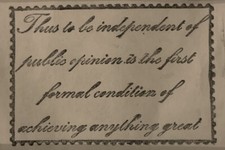 Thus to be independent of
public opinion is the first
formal condition of
achieving anything great